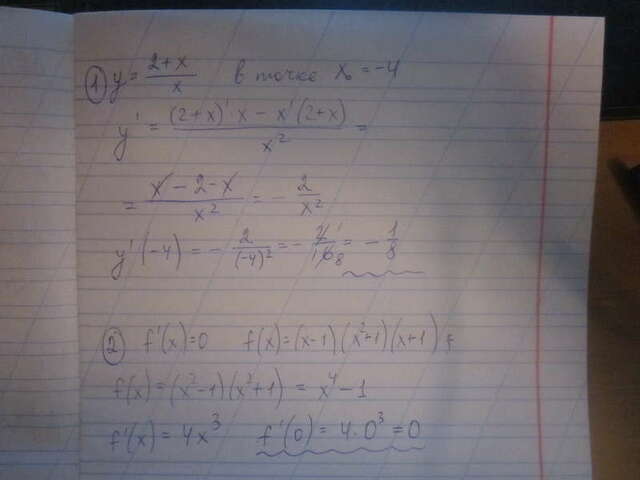 ① y = \frac{2+x}{x} в точке x₀ = -4
y' = \frac{(2+x)'x - x'(2+x)}{x²} =
= \frac{x - 2 - x}{x²} = - \frac{2}{x²}
y'(-4) = - \frac{2}{(-4)²} = - \frac{2}{16} = - \frac{1}{8}
② f'(x) = 0 f(x) = (x-1)(x²+1)(x+1)
f(x) = (x²-1)(x²+1) = x⁴-1
f'(x) = 4x³ f'(0) = 4·0³ = 0